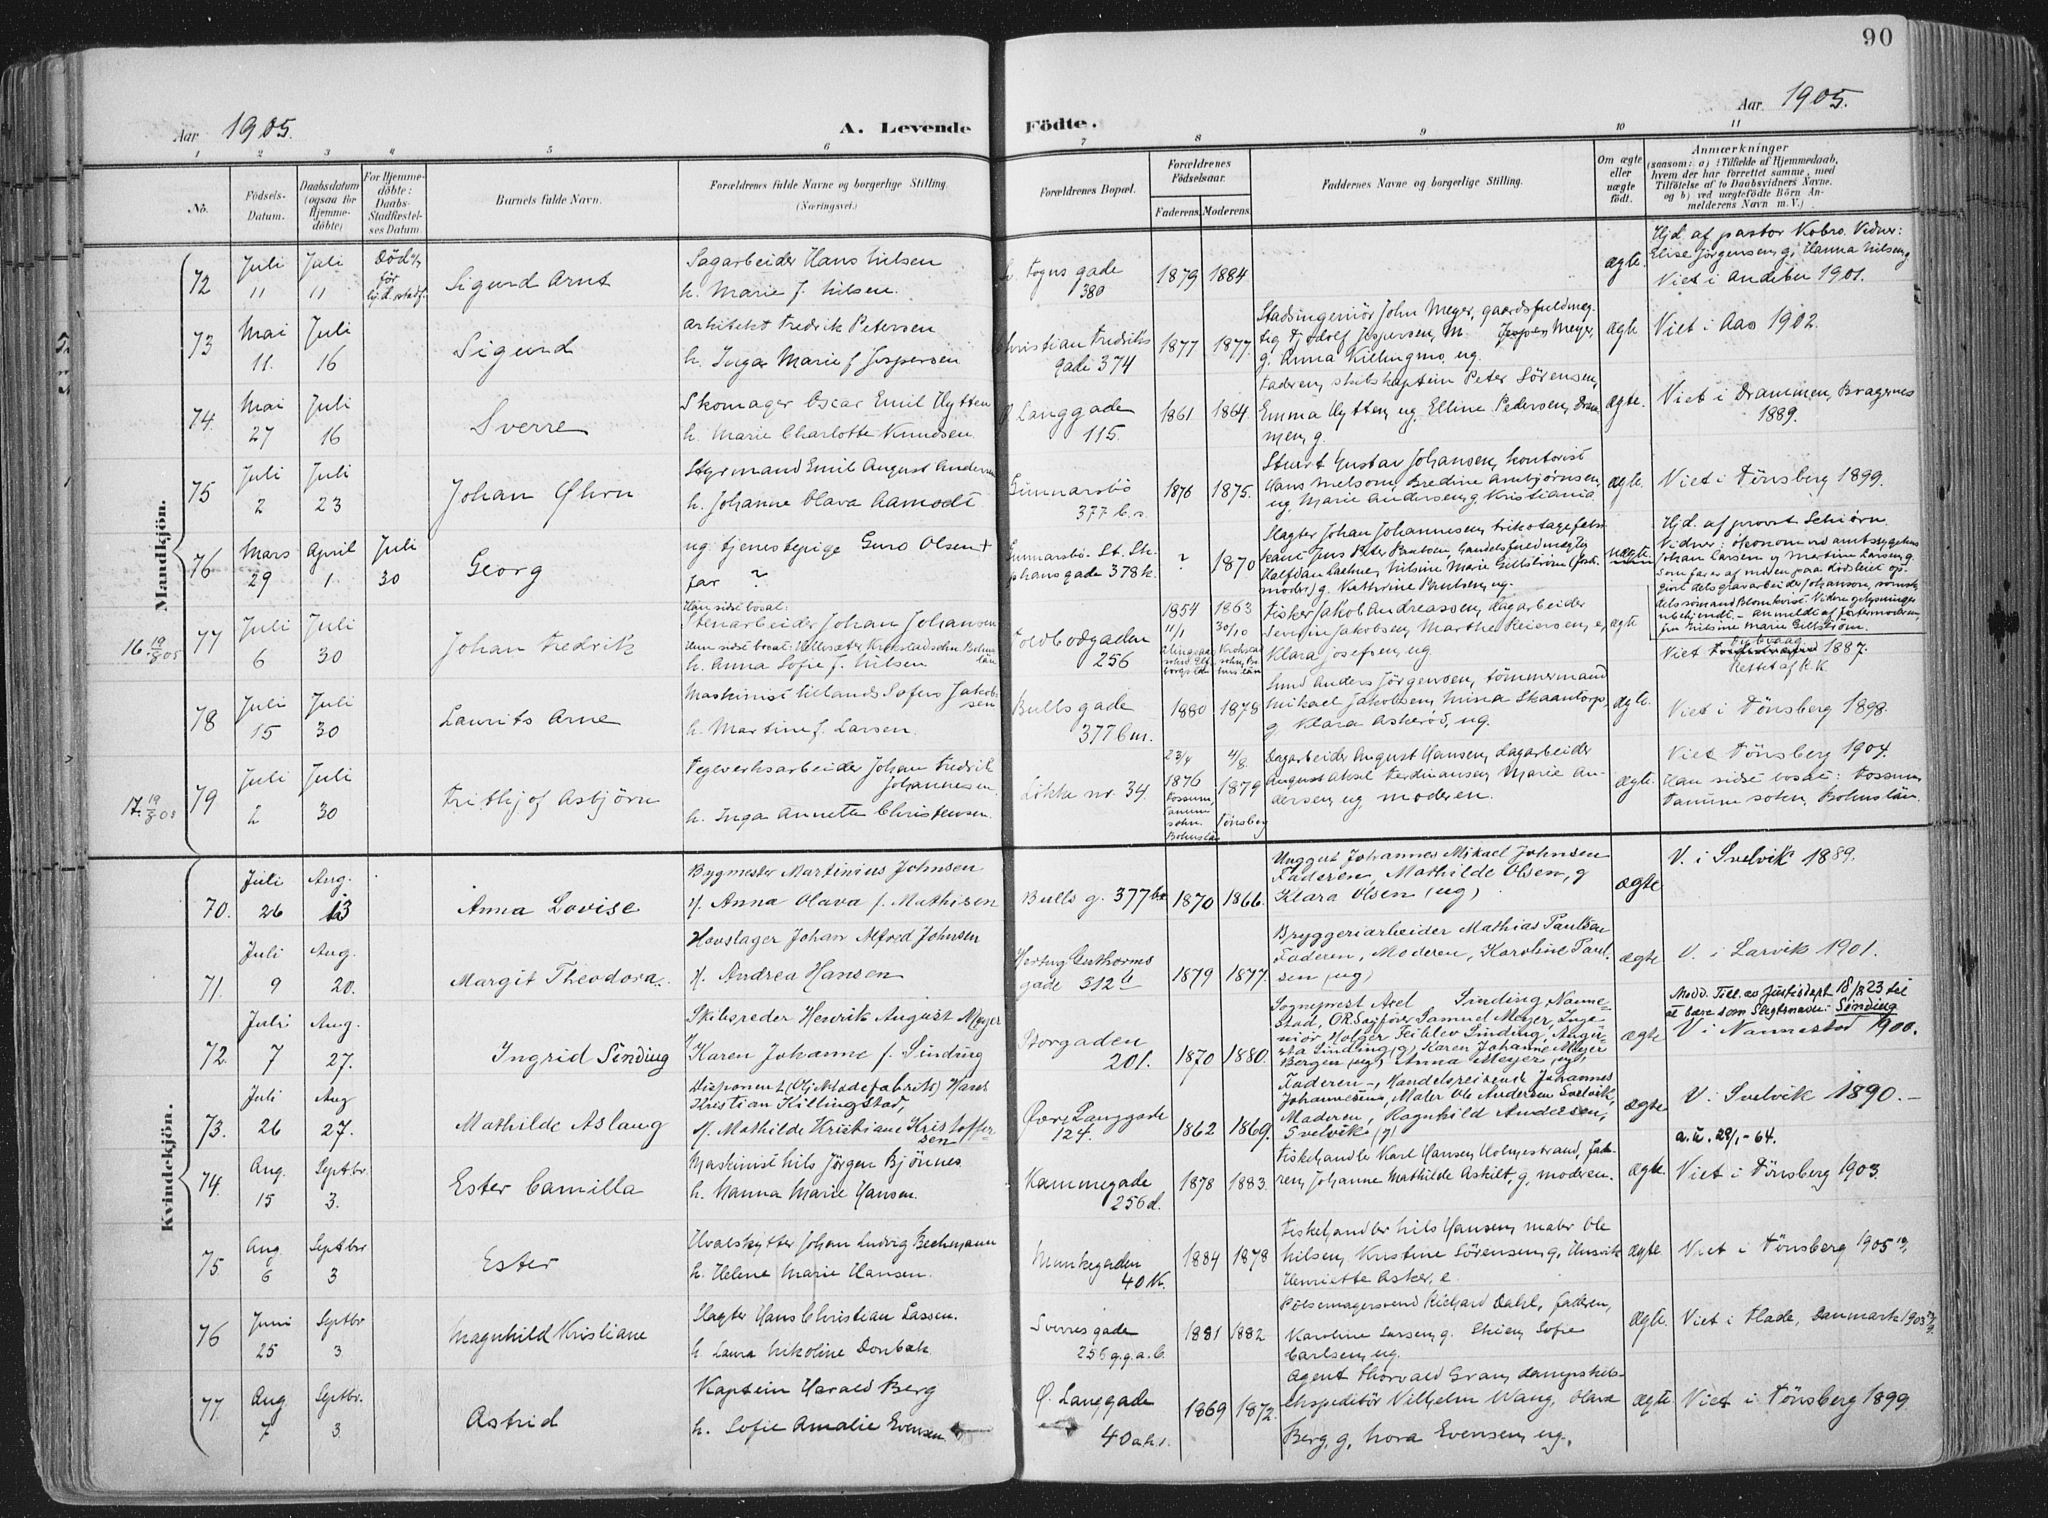 90
Aar 1905.
A. Levende Födte.
Aar 1905.
1 2 3 4 5 6 7 8 9 10 11
No.
Födsels-Datum.
Daabsdatum (ogsaa for Hjemmedöbte)
For Hjemmedöbte: Daabs-Stadfæstelses Datum.
Barnets fulde Navn.
Forældrenes fulde Navne og borgerlige Stilling.
(Næringsvei.)
Forældrenes Bopæl.
Forældrenes Födselsaar.
Faderens. Moderens.
Faddernes Navne og borgerlige Stilling.
Om ægte eller uægte födt.
Anmærkninger
(saasom: a) i Tilfælde af Hjemmedaab, hvem der har forrettet samme, med Tilföielse af to Daabsvidners Navne, og b) ved uægtefödte Börn Anmelderens Navn m. V.)
Mandkjön.
72 Juli 11 Juli 11 Död för hj.d. stadf.
Sigurd Arnt
Sagarbeider Hans Nilsen
h. Marie f. Nilsen.
gade 380
1879 1884
ægte.
Hjd. af pastor Kobro. Vidner:
Elise Jörgensen, g, Hanna Nilsen, g
Viet i Andebu 1901.
73 Mai 11. Juli 16
Sigurd
Arkitekt Fredrik Petersen
h. Inga Marie f. Jespersen
Christian Fredriks gade 374
1877 1877.
Stadsingeniör John Meyer, gaardsfuldmægtig Adolf Jespersen, M. Meyer,
g. Anna Killingmo, ug.
ægte
Viet i Aas 1902.
74. Mai 27 Juli 16
Sverre
Skomager Oscar Emil Hytten
h. Marie Charlotte Knudsen.
Ø Langgade 115.
1861 1864.
Faderen, skibskaptein Peter Sörensen,
Emma Hytten, ug, Elline Pedersen, Drammen, g.
ægte.
Viet i Drammen, Bragernes 1889.
75 Juli 2 Juli 23
Johan Øhrn
Styrmand Emil August Andersen
h. Johanne Olava Aamodt.
Gunnarsbö 377 b.
1876 1875.
Stuert Gustav Johansen, kontorist
Hans Melsom, Bredine Ambjörnsen,
ug, Marie Andersen, g Kristiania.
ægte.
Viet i Tönsberg 1899.
76 Mars 29 April 1. Juli 30
Georg
ug. tjenestepige Guro Olsen +
far ?
Gunnarsbö St. Stephansgade 378 k.
? 1870
Slagter Johan Johannesen, trikotagefabrikant Jens Peter Paulsen, handelsfuldmægtig
Halfdan, Nilsine Marie Gillström (fostermoder) g. Kathrine Paulsen, ug.
uægte
Hjd. af provst Schiörn.
Vidner: ökonom ved amtssygehus
Johan Larsen og Martine Larsen, g.
Som far er af moren paa dödsleiet opgivet dels gravarbeider Johanson, svensk,
dels sømand Blomkvist. Videre oplysninger
ubekjendt. – anmeldt af fostermoderen
fru Nilsine Marie Gillström.
16. 19/8 05
77 Juli 6 Juli 30
Johan Fredrik
Stenarbeider Johan Johansen
h. Anna Sofie f. Nilsen
Toldbodgaden 256
1854 11/1 1863 30/10
Fisker Jakob Andreassen, dagarbeider
Severin Jakobsen, Marthe Reiersen, e,
Klara Josefsen, ug
ægte
Viet 1887.
Rettet af K.K.
78 Juli 15 Juli 30
Laurits Arne
Maskinist Jakobsen
h. Martine f. Larsen.
Bullsgade 377 b m.
1880 1878
Smed Anders Jörgensen, tömmermand
Mikael Jakobsen, Nina Skaantorp,
g, Klara Askerød, ug.
ægte.
Viet i Tönsberg 1898.
17. 19/8 05
79 Juli 2 Juli 30
Frithjof Asbjörn
Teglverksarbeider Johan Fredrik
Johannesen.
h. Inga Annette Christensen.
Lökke nr. 34.
23/4 1876 Tossum, Tanum sokn. Bohuslän 4/8. 1879 Tönsberg
Dagarbeider August Hansen, dagarbeider
August Aksel Ferdinansen, Marie Andersen, ug moderen.
ægte.
Viet Tönsberg 1904.
Han sidst bosat: Tossum,
Tanum sokn, Bohuslän.
Kvindekjön.
70. Juli 26 Aug. 13
Anna Lovise
Bygmester Martinius Johnsen
H. Anna Olava f. Mathisen
Bulls g. 377
1870 1866.
Unggut Johannes Mikael Johnsen
Faderen, Mathilde Olsen, g
Klara Olsen (ug)
ægte
V. i Svelvik 1889.
71. Juli 9 Aug. 20.
Margit Theodora.
Hovslager Johan Alfred Johnsen
H. Andrea Hansen
Hertug Guthorms gade 312 b
1879 1877.
Bryggeriarbeider Mathias Paulsen
Faderen, Moderen, Karoline Paulsen (ug)
ægte
V. i Larvik 1901.
72. Juli 7 Aug. 27.
Ingrid Sinding
Skibsreder Henrik August Meyer
Karen Johanne f. Sinding
Borgaden 201.
1870 1880.
Sogneprest Axel Sinding, Nannestad, OR.Sagfører Samuel Meyer, Ingeniör Holger Fejblev Sinding, Augusta Sinding (g), Karen Johanne Meyer
Bergen (ug) Anna Meyer (ug)
ægte
Medd. Till. av Justisdept 18/8 23 til
at bære som Slegtsnavn: Sinding
V i Nannestad 1900.
73. Juli 26 Aug 27.
Mathilde Aslaug
Disponent (Oljeklædefabrik) Hans
Kristian Killingstad,
H. Mathilde Kristiane Kristoffersen
Øvre Langgade 124.
1862 1869.
Faderen –, Handelsreisende Johannes
Johannesen, Maler Ole Andersen Svelvik,
Moderen, Ragnhild Andersen,
Svelvik (g)
ægte
V. i Svelvik 1890. –
a.u. 29/1-64.
74. Aug. 15 Septbr. 3.
Ester Camilla
Maskinist Nils Jörgen Bjönnes.
h. Nanna Marie Hansen.
Kammegade 256 d.
1878 1883.
Fiskehandler Karl Hansen, Holmestrand, Faderen, Johanne Mathilde Askilt, g, moderen.
ægte
Viet i Tönsberg 1903.
75. Aug 6 Septbr 3
Ester
Hvalskytter Johan Ludvig Bechmann
h. Helene Marie Hansen.
Munkegaden 40 k.
1884 1878
Fiskehandler Nils Hansen, maler Ole
Nilsen, Kristine Sörensen, g,
Henriette Asker, e.
ægte
Viet i Tönsberg 1905
76 Juni 25 Septbr 3
Magnhild Kristiane
Slagter Hans Christian Lassen.
h. Laura Nikoline Donbak.
Sverresgade 256 g.g.a.b.
1881 1882
Pölsemagersvend Richard Dahl, faderen,
Karoline Larsen, g. Skien, Sofie
Carlsen, ug.
ægte.
Viet i Flade, Danmark 1903
77 Aug 7 Septbr. 3
Astrid
Kaptein Harald Berg
h. Sofie Amalie Evensen.
Ø. Langgade 40
1869 1872.
Agent Thorvald Gran, dampskibsekspeditör Vilhelm Wang, Olava
Berg, g, Nora Evensen, ug,
ægte.
Viet i Tönsberg 1899.